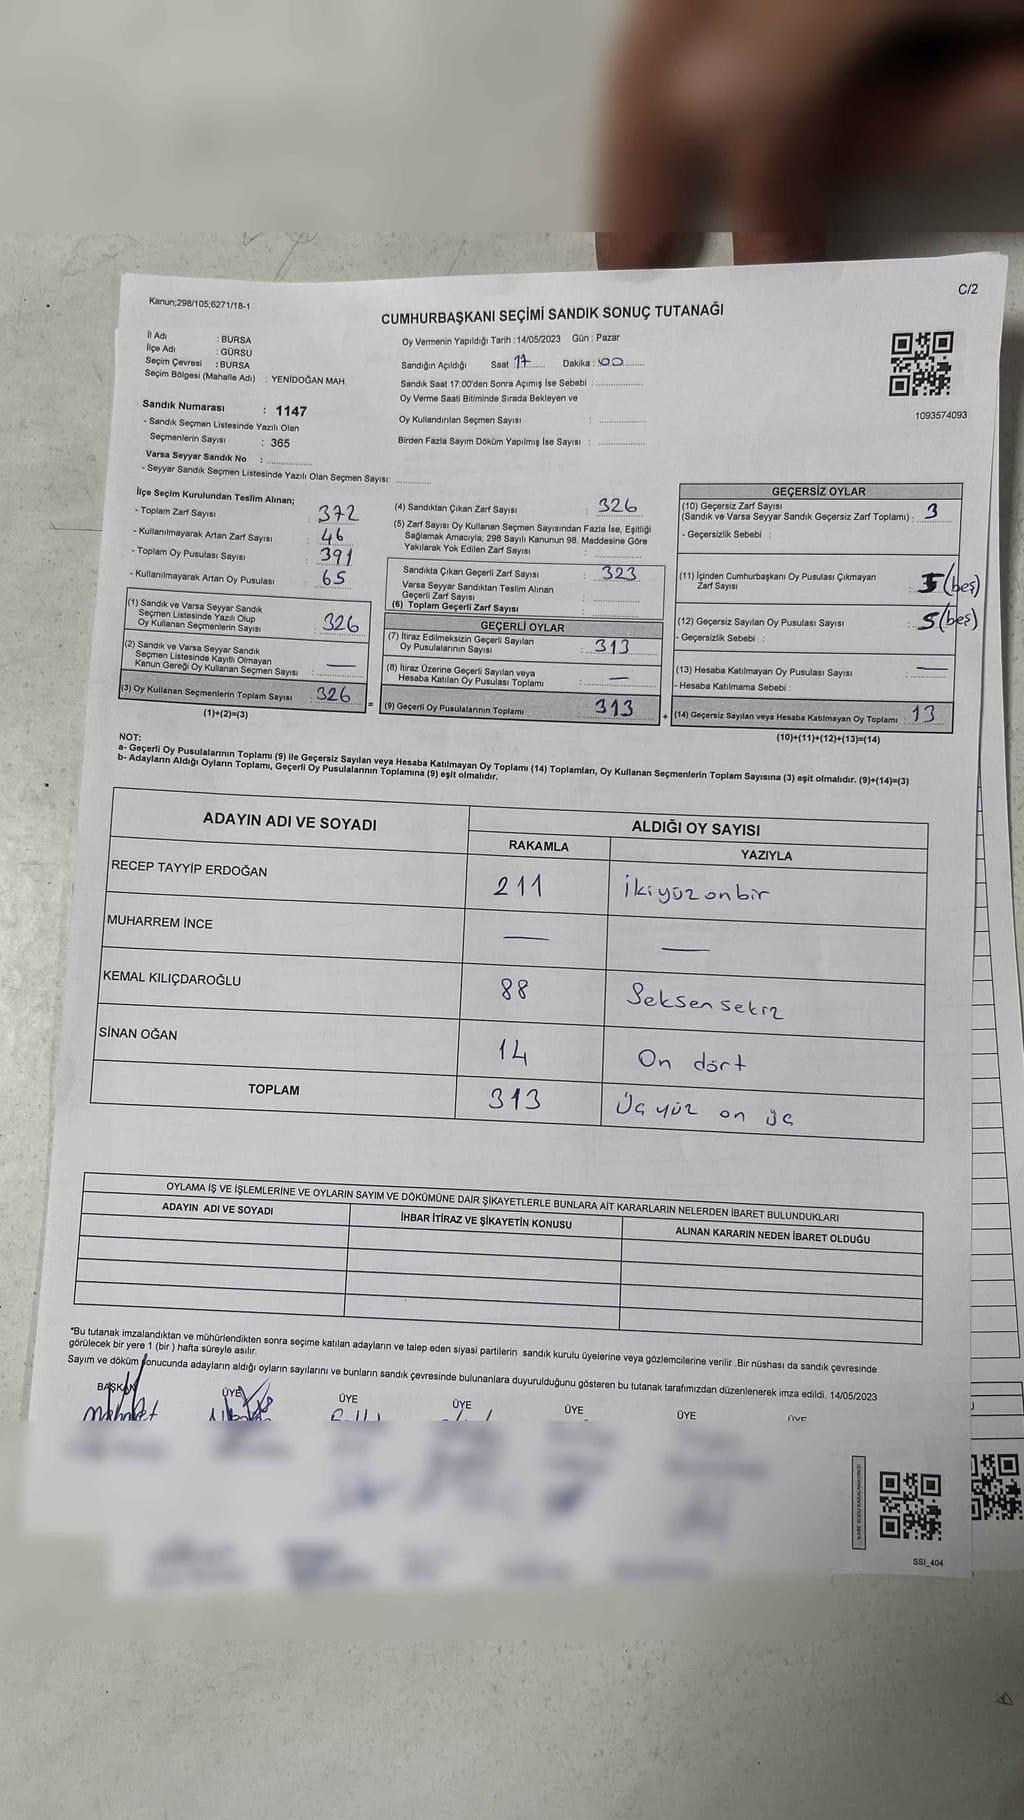 C/2
Kanun;298/105,6271/18-1
CUMHURBAŞKANI SEÇİMİ SANDIK SONUÇ TUTANAĞI
İl Adı : BURSA
İlçe Adı : GÜRSU
Seçim Çevresi : BURSA
Seçim Bölgesi (Mahalle Adı) : YENİDOĞAN MAH.
Oy Vermenin Yapıldığı Tarih : 14/05/2023 Gün : Pazar
Sandığın Açıldığı Saat 17 Dakika : 00
Sandık Saat 17:00'den Sonra Açımış İse Sebebi :
Oy Verme Saati Bitiminde Sırada Bekleyen ve
Oy Kullandırılan Seçmen Sayısı :
Birden Fazla Sayım Döküm Yapılmış İse Sayısı :
1093574093
Sandık Numarası : 1147
- Sandık Seçmen Listesinde Yazılı Olan
Seçmenlerin Sayısı : 365
Varsa Seyyar Sandık No :
- Seyyar Sandık Seçmen Listesinde Yazılı Olan Seçmen Sayısı:
İlçe Seçim Kurulundan Teslim Alınan;
- Toplam Zarf Sayısı : 372
- Kullanılmayarak Artan Zarf Sayısı : 46
- Toplam Oy Pusulası Sayısı : 391
- Kullanılmayarak Artan Oy Pusulası : 65
(1) Sandık ve Varsa Seyyar Sandık
Seçmen Listesinde Yazılı Olup
Oy Kullanan Seçmenlerin Sayısı : 326
(2) Sandık ve Varsa Seyyar Sandık
Seçmen Listesinde Kayıtlı Olmayan
Kanun Gereği Oy Kullanan Seçmen Sayısı : —
(3) Oy Kullanan Seçmenlerin Toplam Sayısı : 326
(1)+(2)=(3)
(4) Sandıktan Çıkan Zarf Sayısı : 326
(5) Zarf Sayısı Oy Kullanan Seçmen Sayısından Fazla İse, Eşitliği
Sağlamak Amacıyla; 298 Sayılı Kanunun 98. Maddesine Göre
Yakılarak Yok Edilen Zarf Sayısı :
Sandıkta Çıkan Geçerli Zarf Sayısı : 323
Varsa Seyyar Sandıktan Teslim Alınan
Geçerli Zarf Sayısı :
(6) Toplam Geçerli Zarf Sayısı :
GEÇERLİ OYLAR
(7) İtiraz Edilmeksizin Geçerli Sayılan
Oy Pusulalarının Sayısı : 313
(8) İtiraz Üzerine Geçerli Sayılan veya
Hesaba Katılan Oy Pusulası Toplamı : —
= (9) Geçerli Oy Pusulalarının Toplamı 313
GEÇERSİZ OYLAR
(10) Geçersiz Zarf Sayısı
(Sandık ve Varsa Seyyar Sandık Geçersiz Zarf Toplamı) : 3
- Geçersizlik Sebebi :
(11) İçinden Cumhurbaşkanı Oy Pusulası Çıkmayan
Zarf Sayısı : 5 (beş)
(12) Geçersiz Sayılan Oy Pusulası Sayısı : 5 (beş)
- Geçersizlik Sebebi :
(13) Hesaba Katılmayan Oy Pusulası Sayısı : —
- Hesaba Katılmama Sebebi :
+ (14) Geçersiz Sayılan veya Hesaba Katılmayan Oy Toplamı : 13
(10)+(11)+(12)+(13)=(14)
NOT:
a- Geçerli Oy Pusulalarının Toplamı (9) ile Geçersiz Sayılan veya Hesaba Katılmayan Oy Toplamı (14) Toplamları, Oy Kullanan Seçmenlerin Toplam Sayısına (3) eşit olmalıdır. (9)+(14)=(3)
b- Adayların Aldığı Oyların Toplamı, Geçerli Oy Pusulalarının Toplamına (9) eşit olmalıdır.
ADAYIN ADI VE SOYADI
ALDIĞI OY SAYISI
RAKAMLA YAZIYLA
RECEP TAYYİP ERDOĞAN 211 İkiyüzonbir
MUHARREM İNCE — —
KEMAL KILIÇDAROĞLU 88 Seksen sekiz
SİNAN OĞAN 14 On dört
TOPLAM 313 Üç yüz on üç
OYLAMA İŞ VE İŞLEMLERİNE VE OYLARIN SAYIM VE DÖKÜMÜNE DAİR ŞİKAYETLERLE BUNLARA AİT KARARLARIN NELERDEN İBARET BULUNDUKLARI
ADAYIN ADI VE SOYADI İHBAR İTİRAZ VE ŞİKAYETİN KONUSU ALINAN KARARIN NEDEN İBARET OLDUĞU
*Bu tutanak imzalandıktan ve mühürlendikten sonra seçime katılan adayların ve talep eden siyasi partilerin sandık kurulu üyelerine veya gözlemcilerine verilir .Bir nüshası da sandık çevresinde
görülecek bir yere 1 (bir ) hafta süreyle asılır.
Sayım ve döküm sonucunda adayların aldığı oyların sayılarını ve bunların sandık çevresinde bulunanlara duyurulduğunu gösteren bu tutanak tarafımızdan düzenlenerek imza edildi. 14/05/2023
BAŞKAN ÜYE ÜYE ÜYE ÜYE ÜYE ÜYE
Mehmet
KARE KODU KARALAMAYINIZ!
SSI_404